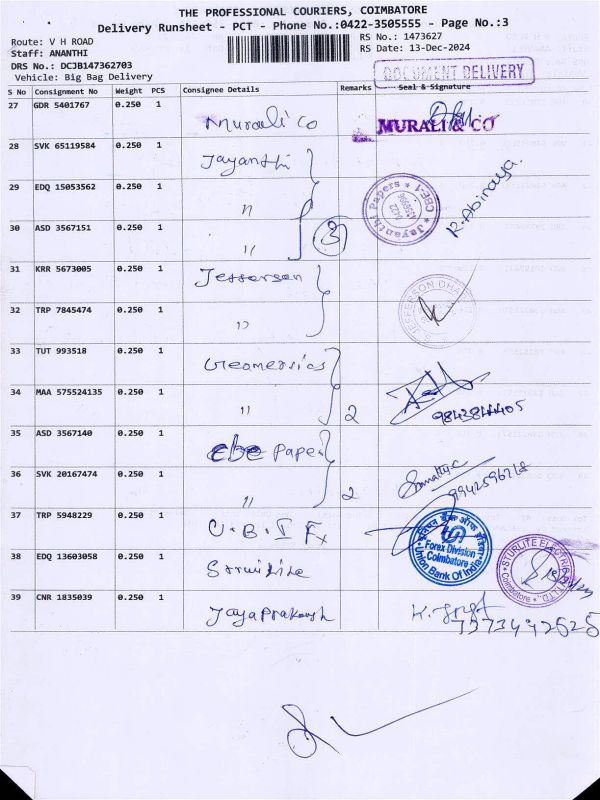 THE PROFESSIONAL COURIERS, COIMBATORE
Delivery Runsheet - PCT - Phone No.:0422-3505555 - Page No.:3
Route: V H ROAD
Staff: ANANTHI
DRS No.: DCJB147362703
Vehicle: Big Bag Delivery
RS No.: 1473627
RS Date: 13-Dec-2024
DOCUMENT DELIVERY
S No Consignment No Weight PCS Consignee Details Remarks Seal & Signature
27 GDR 5401767 0.250 1 Murali Co MURALI & CO
28 SVK 65119584 0.250 1 Jayanthi
29 EDQ 15053562 0.250 1 " Jayanthi Papers CBE-1 R. Abinaya.
30 ASD 3567151 0.250 1 " 3
31 KRR 5673005 0.250 1 Jefferson
32 TRP 7845474 0.250 1 " JEFFERSON
33 TUT 993518 0.250 1 Geomersics
34 MAA 575524135 0.250 1 " 2 9843844405
35 ASD 3567140 0.250 1 cbe Paper
36 SVK 20167474 0.250 1 " 2 9942596218
37 TRP 5948229 0.250 1 U.B.I Fx
Forex Division Coimbatore Union Bank Of India
38 EDQ 13603058 0.250 1
STURLITE ELECTRIC Coimbatore
39 CNR 1835039 0.250 1 Jayaprakash
7373492525